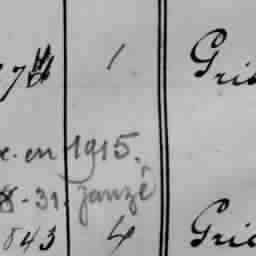 1 Gri
en 1915.
8-31. Janzé
843 4 Gri